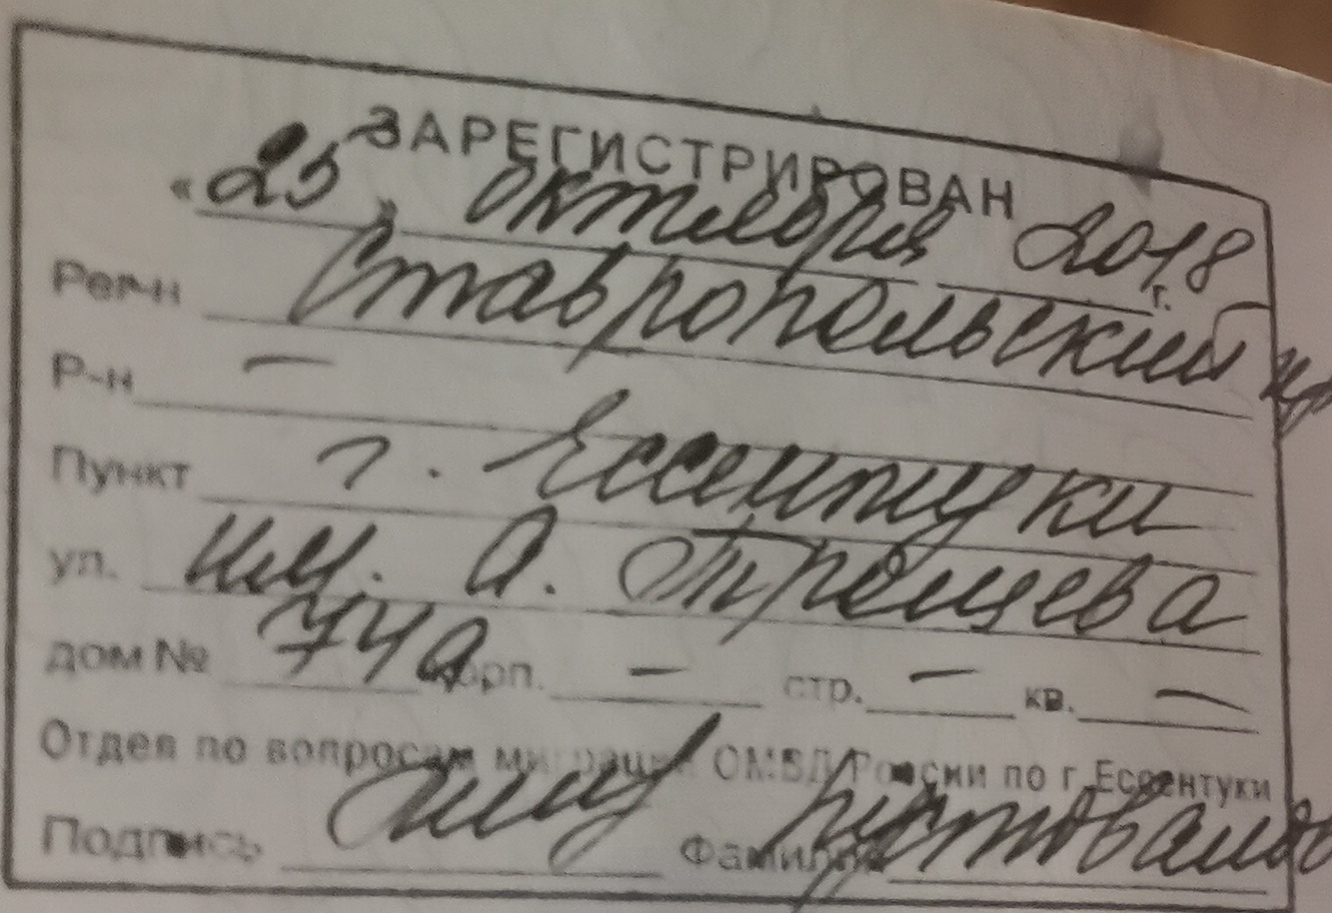 ЗАРЕГИСТРИРОВАН
«25» октября 2018 г.
Рег-н Ставропольский кр
Р-н —
Пункт г. Ессентуки
ул. им. А. Трощева
дом № 74а корп. — стр. — кв. —
Отдел по вопросам миграции ОМВД России по г. Ессентуки
Подпись Фамилия